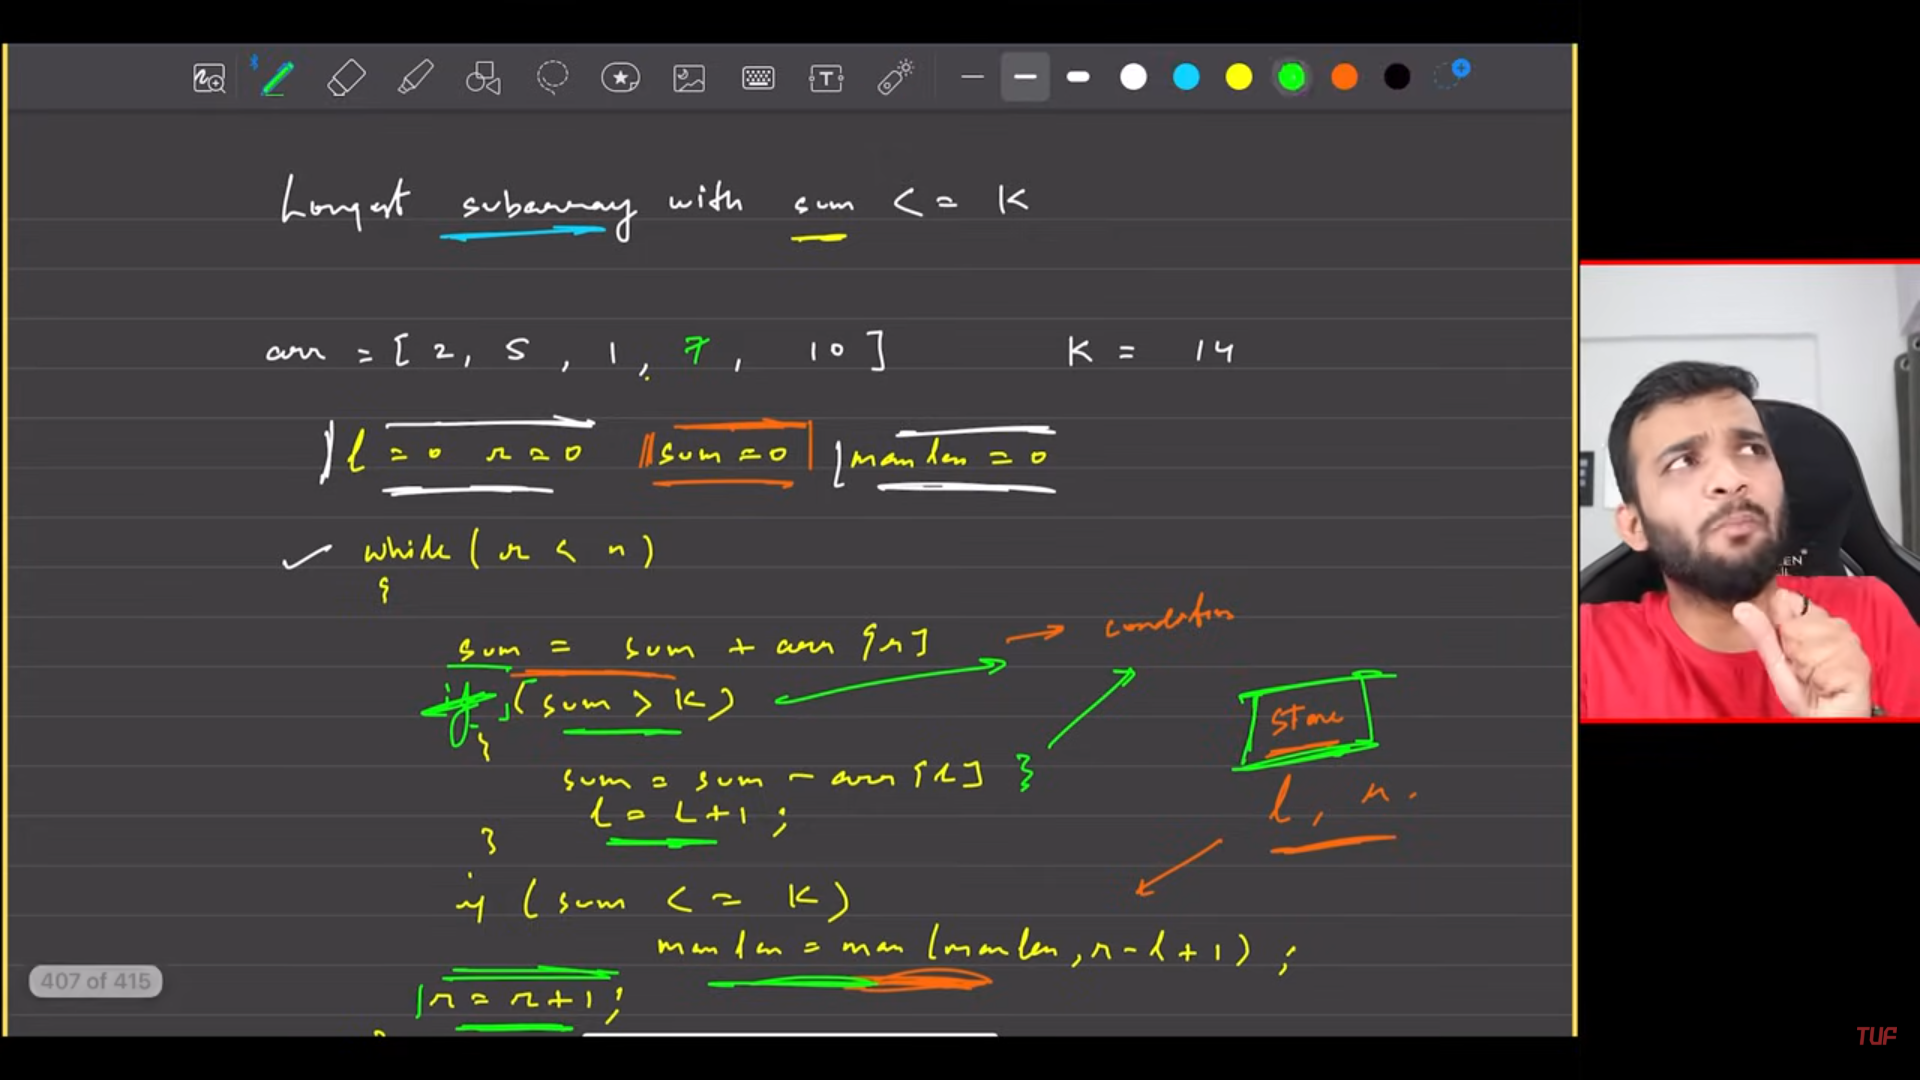 Longest subarray with sum <= K
arr = [ 2, 5, 1, 7, 10 ] K = 14
l = 0 r = 0 sum = 0 maxlen = 0
while ( r < n )
{
sum = sum + arr[r] → condition
if (sum > K)
{
store
sum = sum - arr[l] }
l = l + 1 ;
l, r.
}
if (sum <= K)
maxlen = max (maxlen, r - l + 1) ;
407 of 415
r = r + 1 ;
TUF